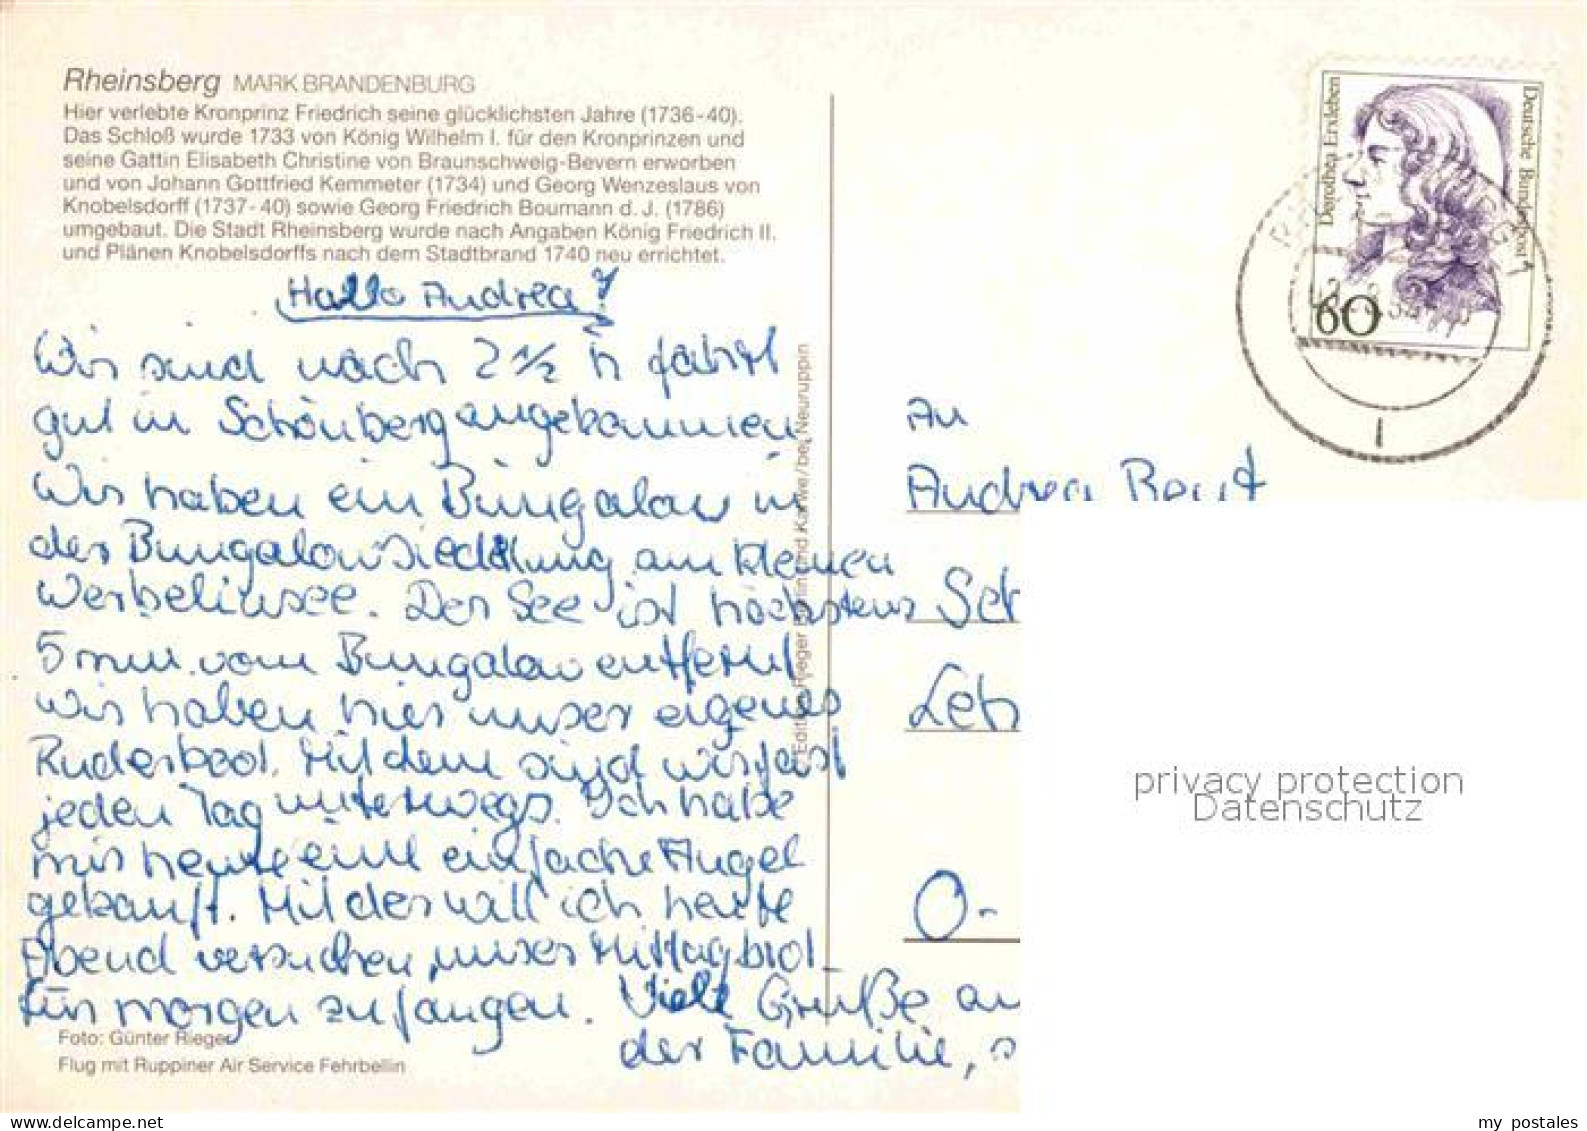 Rheinsberg MARK BRANDENBURG
Hier verlebte Kronprinz Friedrich seine glücklichsten Jahre (1736-40).
Das Schloß wurde 1733 von König Wilhelm I. für den Kronprinzen und
seine Gattin Elisabeth Christine von Braunschweig-Bevern erworben
und von Johann Gottfried Kemmeter (1734) und Georg Wenzeslaus von
Knobelsdorff (1737-40) sowie Georg Friedrich Boumann d. J. (1786)
umgebaut. Die Stadt Rheinsberg wurde nach Angaben König Friedrich II.
und Plänen Knobelsdorffs nach dem Stadtbrand 1740 neu errichtet.
Hallo Andrea!
Wir sind nach 2 1/2 h fahrt
gut in Schönberg angekommen
Wir haben ein Bungalow in
der Bungalowsiedlung am kleinen
Werbellinsee. Der See ist höchstens
5 min. vom Bungalow entfernt
wir haben hier unser eigenes
Ruderboot. Mit dem sind wir fast
jeden Tag unterwegs. Ich habe
mir heute eine einfache Angel
gekauft. Mit der will ich heute
Abend versuchen, unser Mittagbrot
für morgen zu fangen. Viele Grüße an
der Familie,
Foto: Günter Rieger
Flug mit Ruppiner Air Service Fehrbellin
Edition Rieger Berlin und Karwe/bei Neuruppin
Dorothea Erxleben
Deutsche Bundespost
60
1
An
Andrea
Leh
O-
privacy protection
Datenschutz
my postales